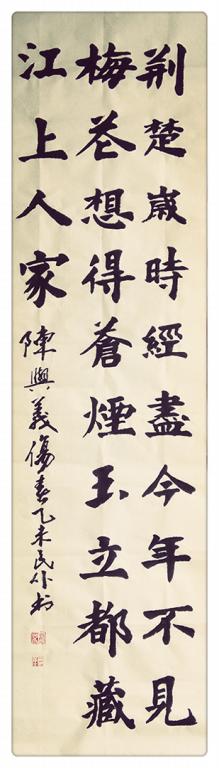 荆楚嵗時經盡今年不見
梅花想得蒼煙玉立都藏
江上人家
陳與義傷春乙未民